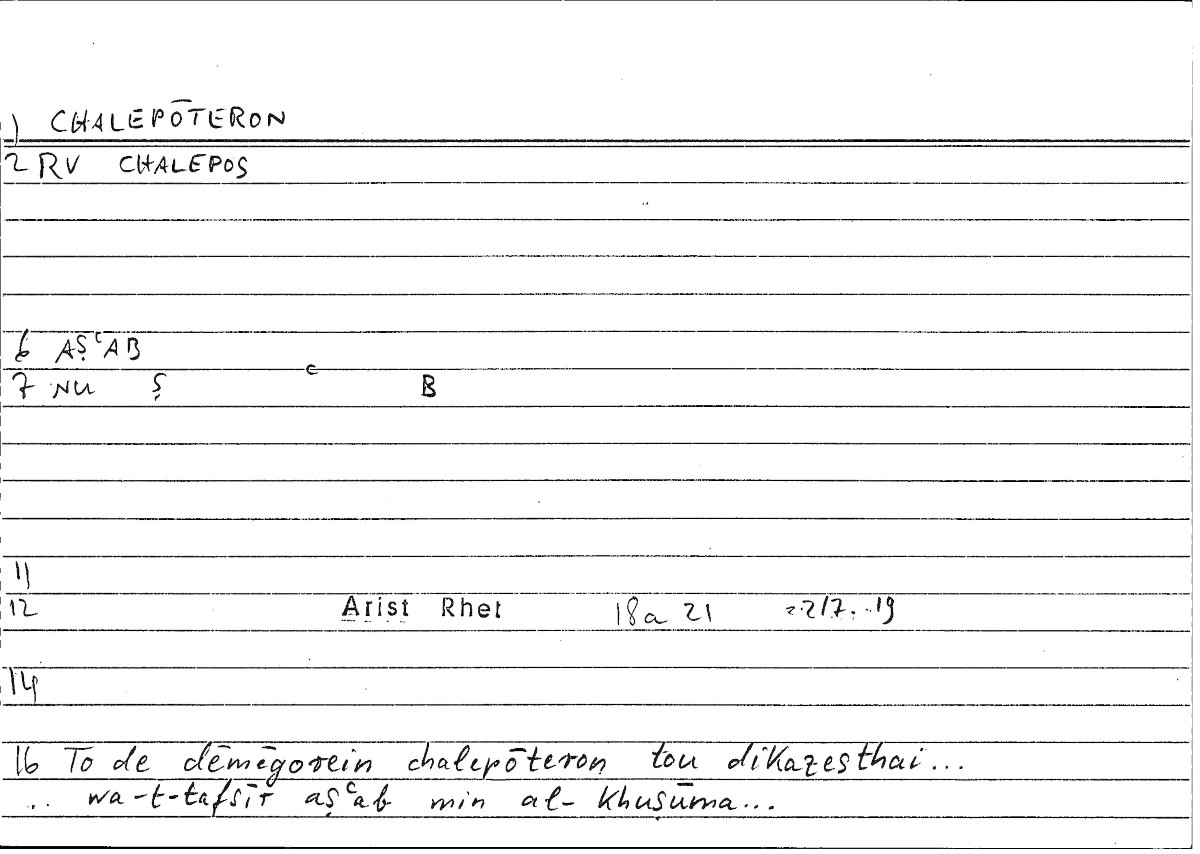 1) CHALEPŌTERON
2 RV CHALEPOS
6 AṢʿAB
7 NU Ṣ ʿ B
11
12 Arist Rhet 18a 21 19
14
16 To de dēmēgorein chalepōteron tou dikazesthai...
.. wa-t-tafsīr aṣʿab min al-khuṣūma...